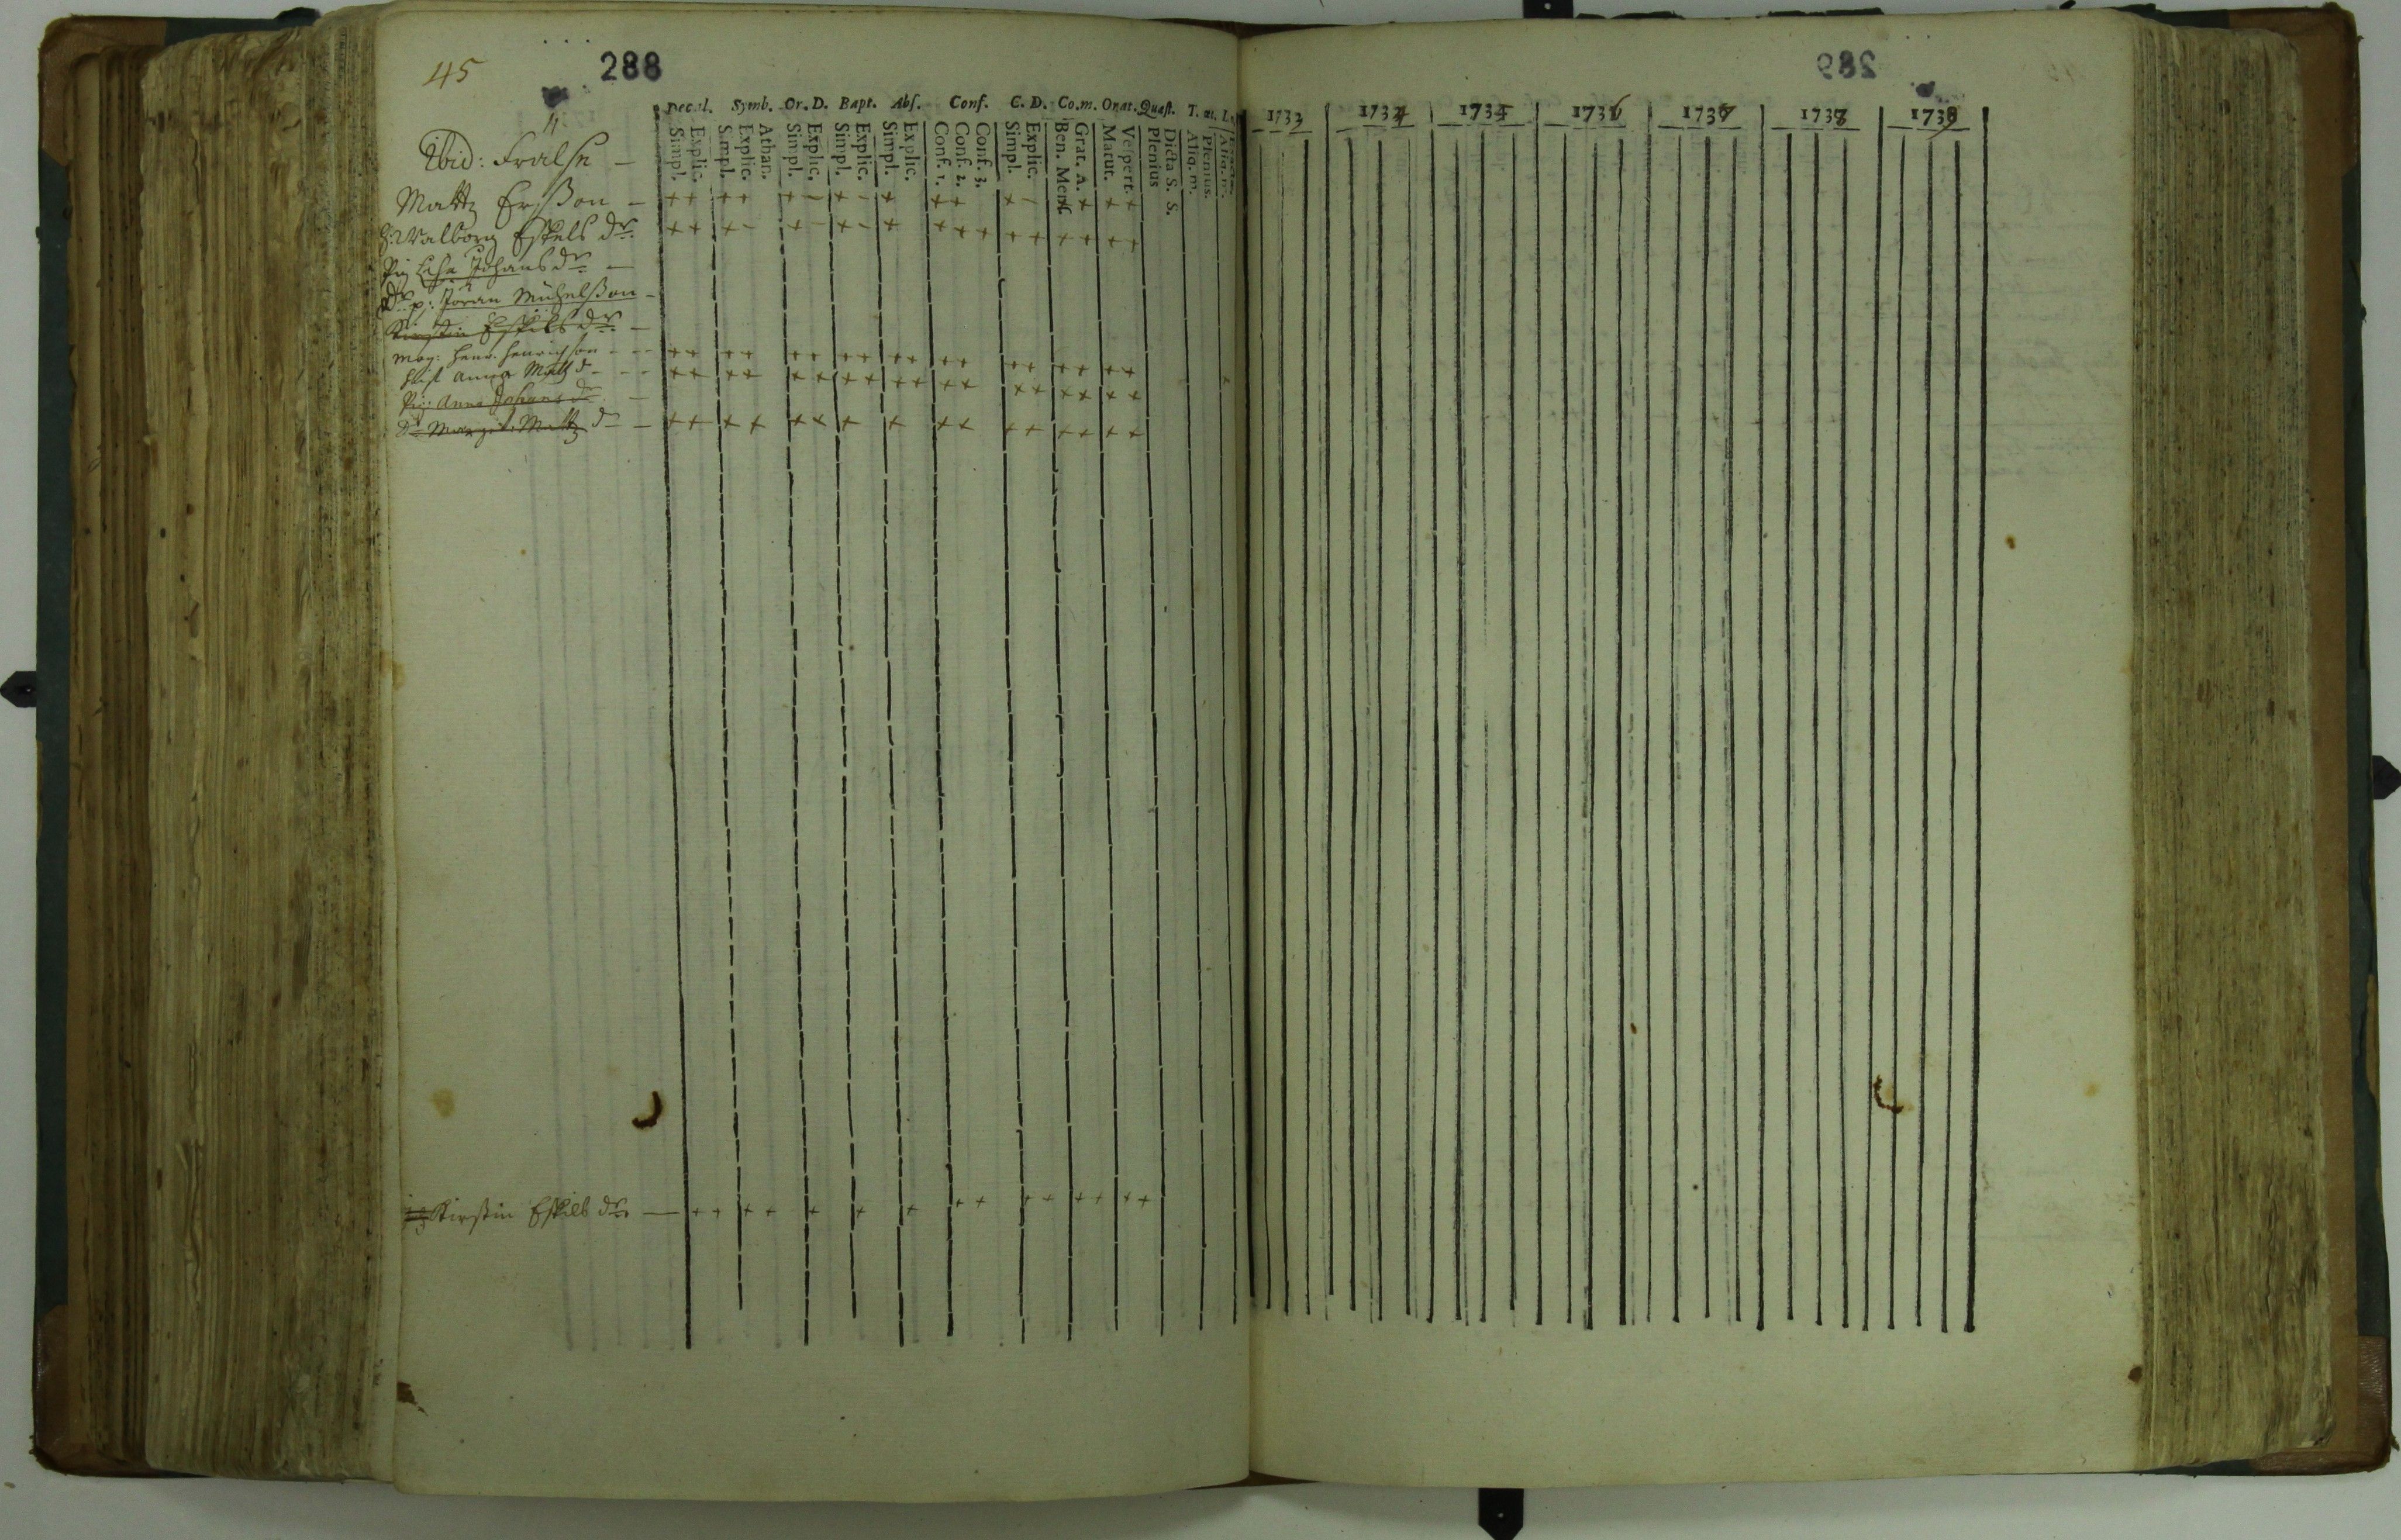 45
288
Decal. Symb. Or. D. Bapt. Abſ. Conf. C. D. Co.m. Orat. Quæſt. T. m.
Simpl. Explic. Simpl. Explic. Athan. Simpl. Explic. Simpl. Explic. Simpl. Explic. Conf. 1. Conf. 2. Conf. 3. Simpl. Explic. Ben. Menſ. Grat. A. Matut. Veſpert. Plenius Dicta S. S. Aliq. m. Plenius. Aliq. m.
4.
Ibid: Frälse —
Mattz Erßon — + + + + + – + – + + + + – + + + +
H: Walborg Eskels dr. + + + – + – + – + + + + + + + + + +
Pig Lisa Johans dr —
dr p: Jöran Michelßon —
Kirstin Eskils dr —
Mag: Henr. Henrichson - - + + + + + + + + + + + + + + + + + +
Hust Anna Mattz d - - - + + + + + + + + + + + + + + + + + +
Pig: Anna Johans dr —
Margit: Mattz d — + + + + + + + + + + + + + + + +
Kirstin Eskils dr — + + + + + + + + + + + + + + +
1733 1734 1735 1736 1737 1738 1739